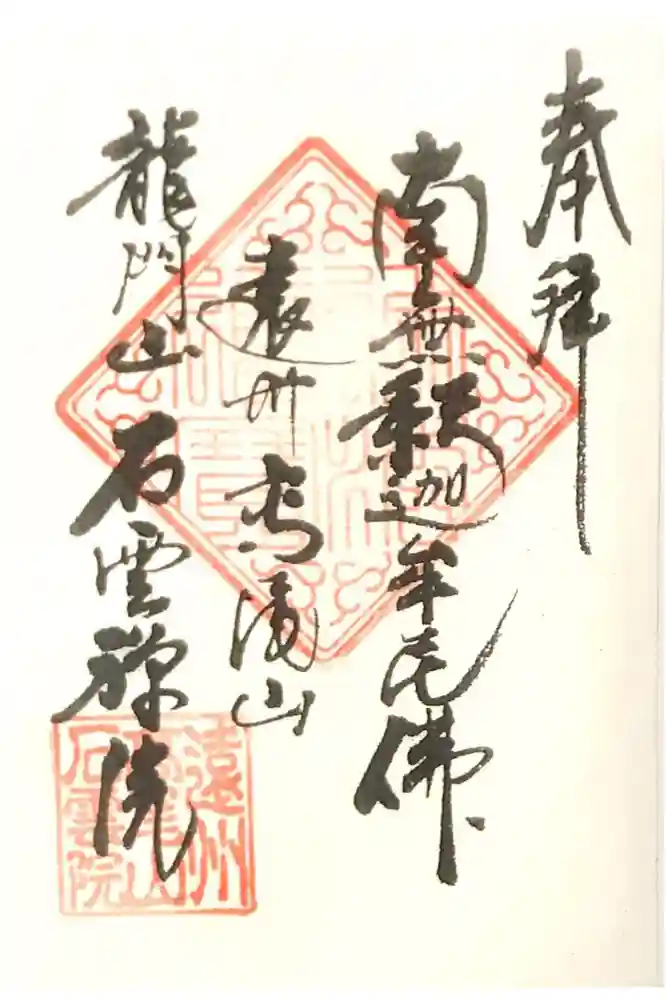 奉拝
南無釈迦牟尼佛
遠州高尾山
龍門山石雲禅院
遠州
高尾山
石雲院